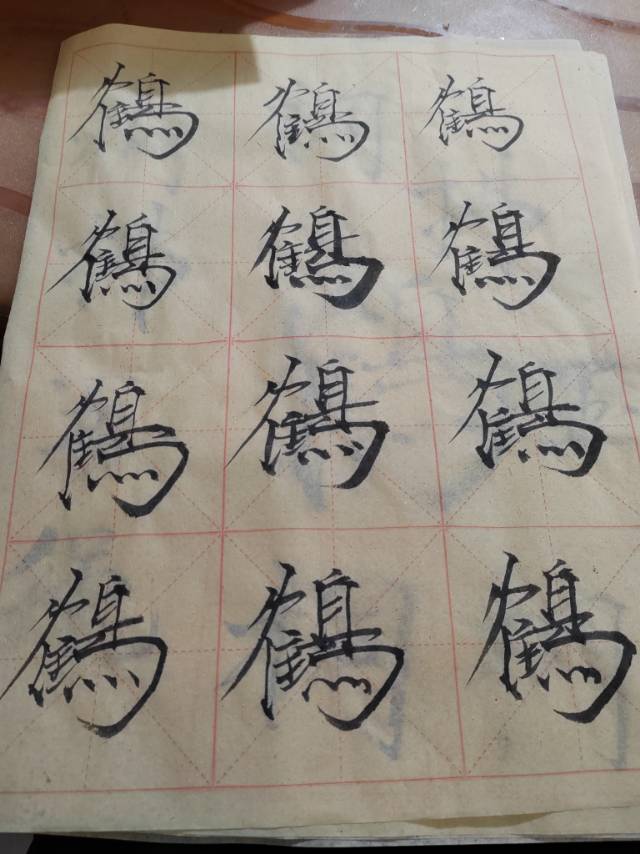 鶴鶴鶴
鶴鶴鶴
鶴鶴鶴
鶴鶴鶴